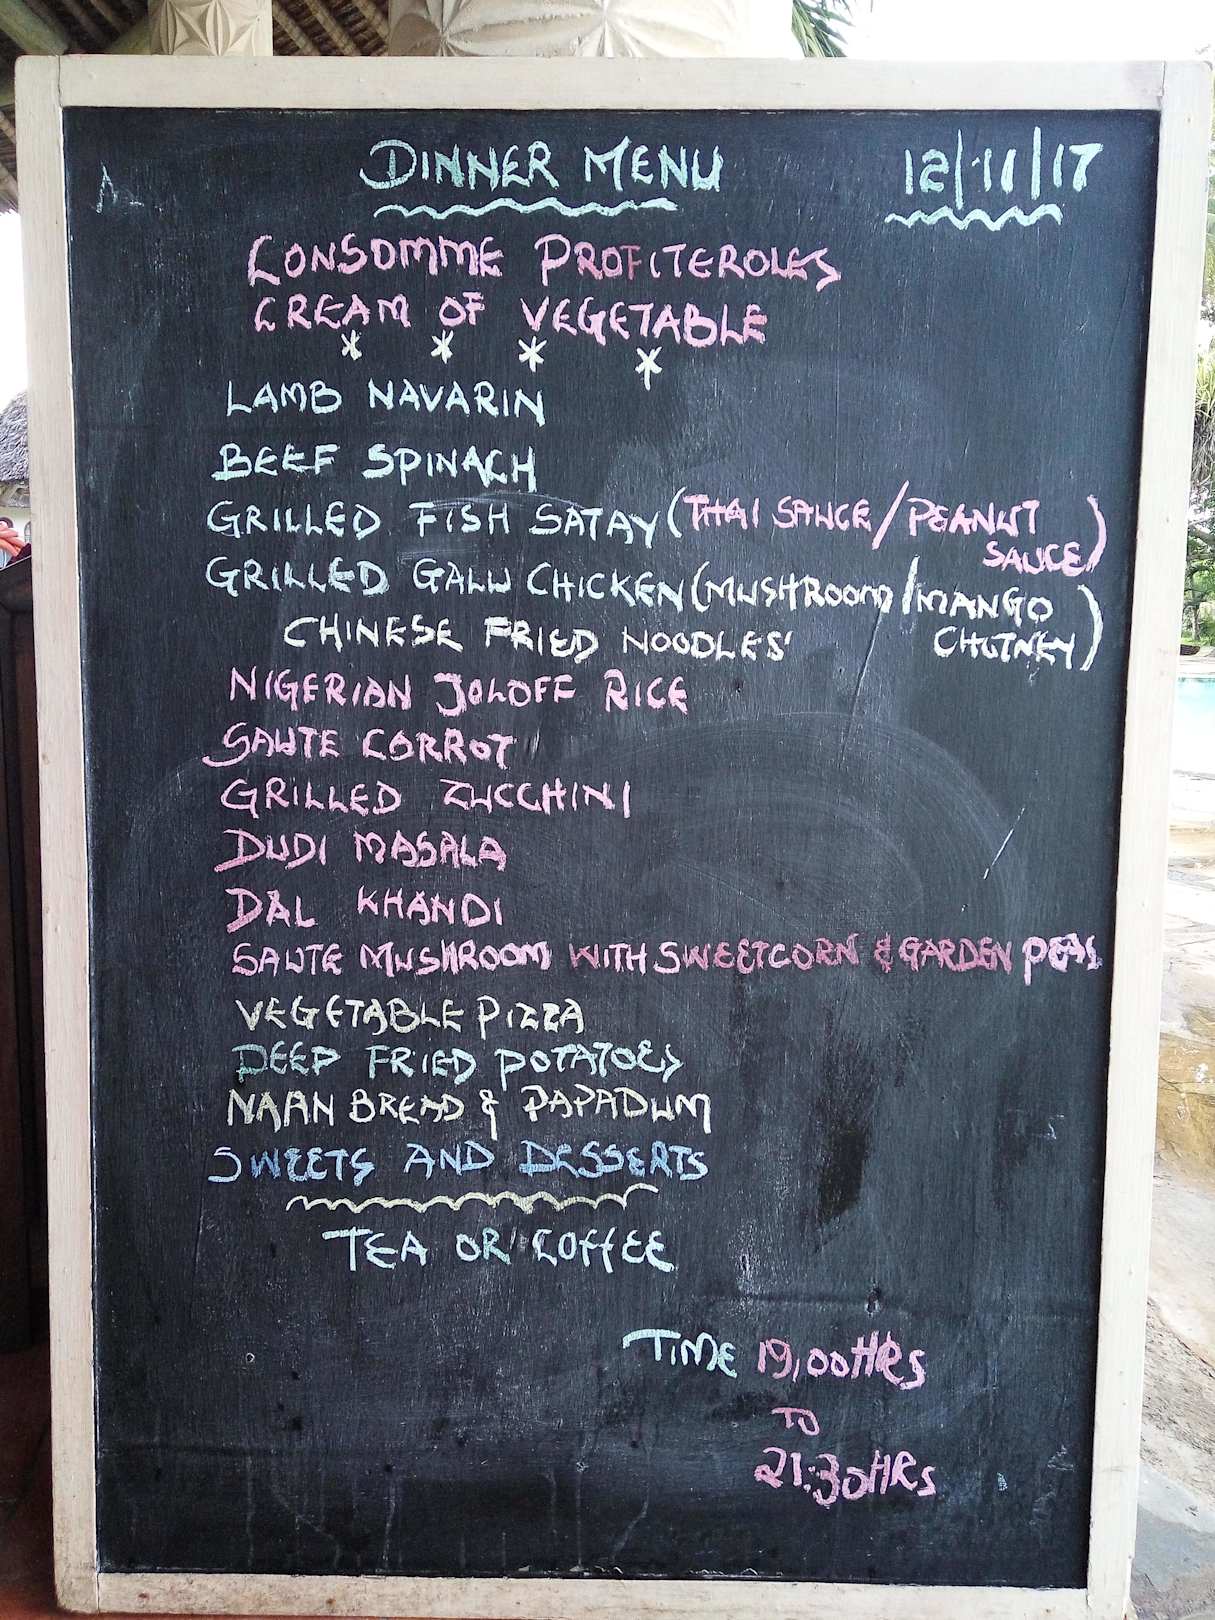 DINNER MENU 12/11/17
CONSOMME PROFITEROLES
CREAM OF VEGETABLE
* * * *
LAMB NAVARIN
BEEF SPINACH
GRILLED FISH SATAY (THAI SAUCE/PEANUT SAUCE)
GRILLED GALU CHICKEN (MUSHROOM/MANGO CHUTNEY)
CHINESE FRIED NOODLES'
NIGERIAN JOLOFF RICE
SAUTE CORROT
GRILLED ZUCCHINI
DUDI MASALA
DAL KHANDI
SAUTE MUSHROOM WITH SWEETCORN & GARDEN PEAS
VEGETABLE PIZZA
DEEP FRIED POTATOES
NAAN BREAD & PAPADUM
SWEETS AND DESSERTS
TEA OR COFFEE
TIME 19,00HRS
TO
21:30HRS